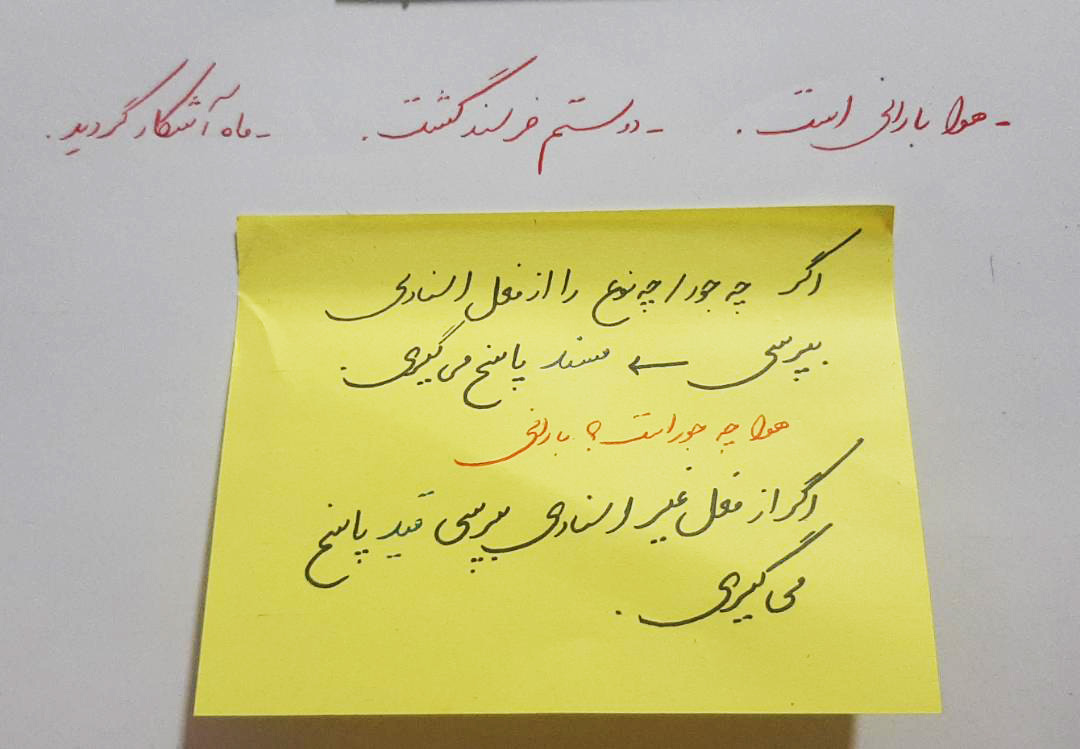 - هوا بارانی است . - دوستم خرسند گشت . - ماه آشکار گردید .
اگر چه جور / چه نوع را از فعل اسنادی
بپرسی ← مسند پاسخ می گیری .
هوا چه جور است ؟ بارانی
اگر از فعل غیر اسنادی بپرسی قید پاسخ
می گیری .